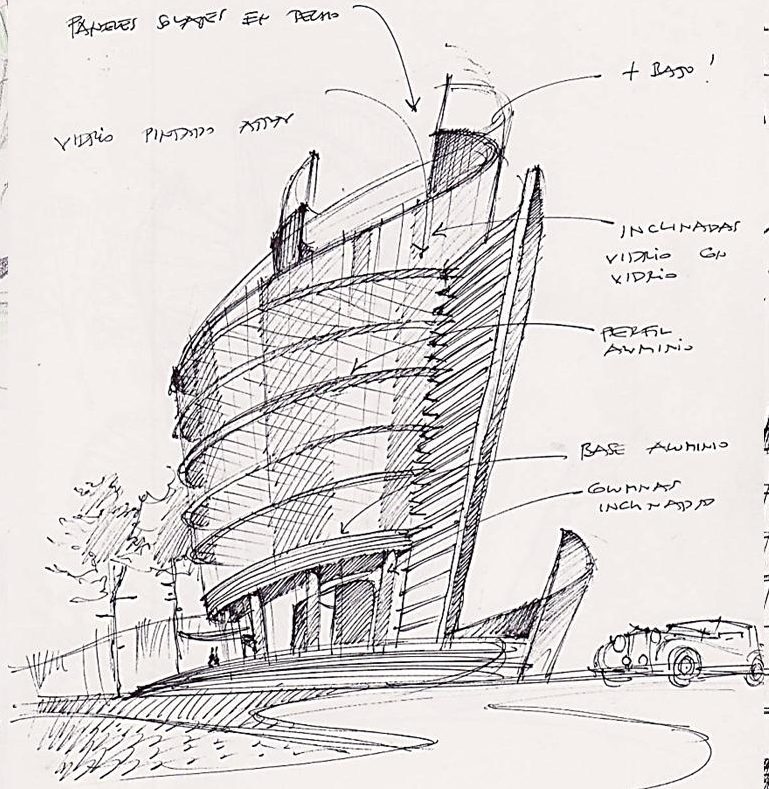 PANELES SOLARES EN TECHO
+ BAJO!
VIDRIO PINTADO
INCLINADAS
VIDRIO CON
VIDRIO
PERFIL
ALUMINIO
BASE ALUMINIO
COLUMNAS
INCLINADAS